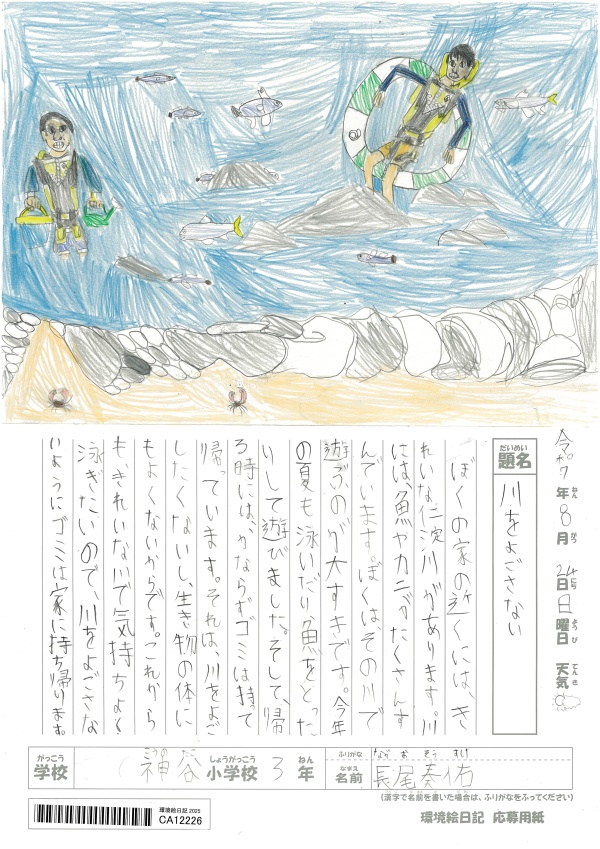 令和7年8月24日日曜日 天気
ねん がつ にち ようび てんき
だいめい
題名 川をよごさない
ぼくの家の近くには、き
れいな仁淀川があります。川
には、魚やカニがたくさんす
んでいます。ぼくはその川で
遊ぶのが大すきです。今年
の夏も泳いだり魚をとった
りして遊びました。そして、帰
る時には、かならずゴミは持って
帰っています。それは、川をよご
したくないし、生き物の体に
もよくないからです。これから
もきれいな川で気持ちよく
泳ぎたいので、川をよごさな
いようにゴミは家に持ち帰ります。
がっこう こうのたに しょうがっこう ねん
学校 神谷小学校 3年
ふりがな ながお そうすけ
なまえ
名前 長尾奏佑
(漢字で名前を書いた場合は、ふりがなをふってください)
環境絵日記 2025
CA12226
環境絵日記 応募用紙